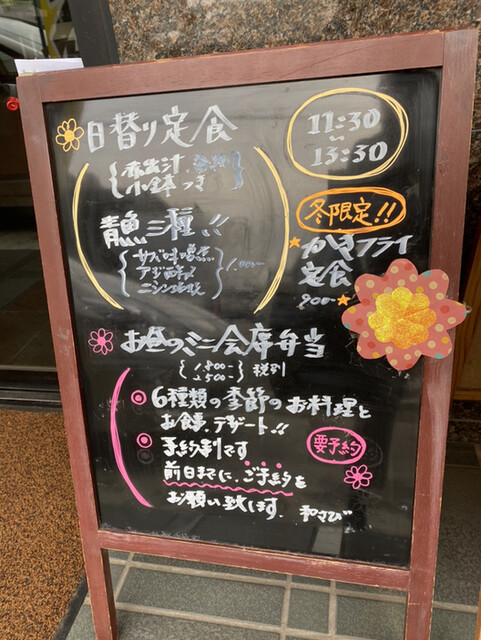 日替り定食
赤出汁、
小鉢つき
11:30
13:30
青魚三種!!
サバ味噌煮
アジ
ニシン
1,000-
冬限定!!
かきフライ
定食
900-
お昼のミニ会席弁当
1,800-
2,500-
税別
6種類の季節のお料理と
お食事、デザート!!
予約制です
要予約
前日までに、ご予約を
お願い致します。 和さび